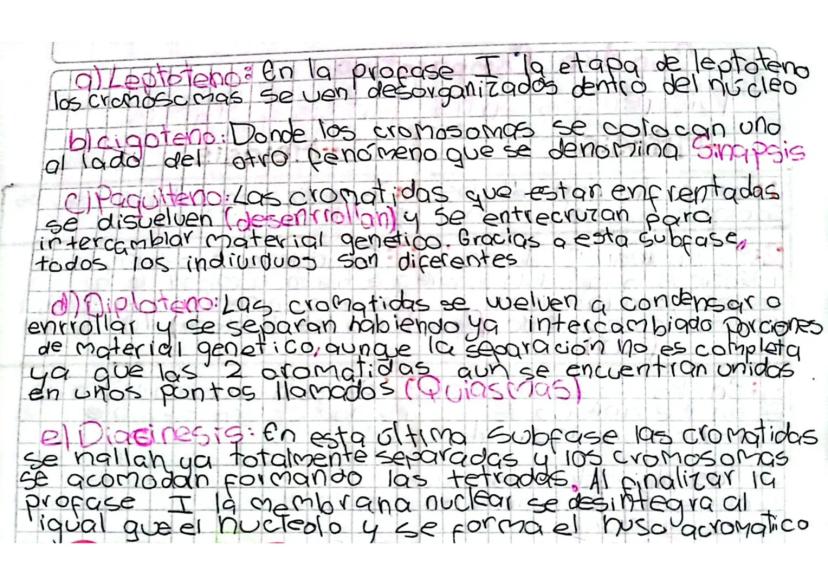 a) Leptoteno: En la profase I la etapa de leptoteno
los cromosomas se ven desorganizados dentro del núcleo
b) cigoteno: Donde los cromosomas se colocan uno
al lado del otro. fenómeno que se denomina Sinapsis
c) Paquiteno: Las cromatidas que estan enfrentadas
se disuelven (desenrrollan) y se entrecruzan para
intercambiar material genetico. Gracias a esta subfase,
todos los individuos son diferentes
d) Diploteno: Las cromatidas se welven a condensar o
enrrollar y se separan habiendo ya intercambiado porciones
de material genetico, aunqe la separación no es completa
ya que las 2 cromatidas aun se encuentran unidos
en unos pontos llamados (Quiasmas)
e) Diacinesis: En esta última subfase las cromatidas
se hallan ya totalmente separadas y los cromosomas
se acomodan formando las tetradas. Al finalizar la
profase I la membrana nuclear se desintegra al
igual que el nucleolo y se forma el huso acromatico